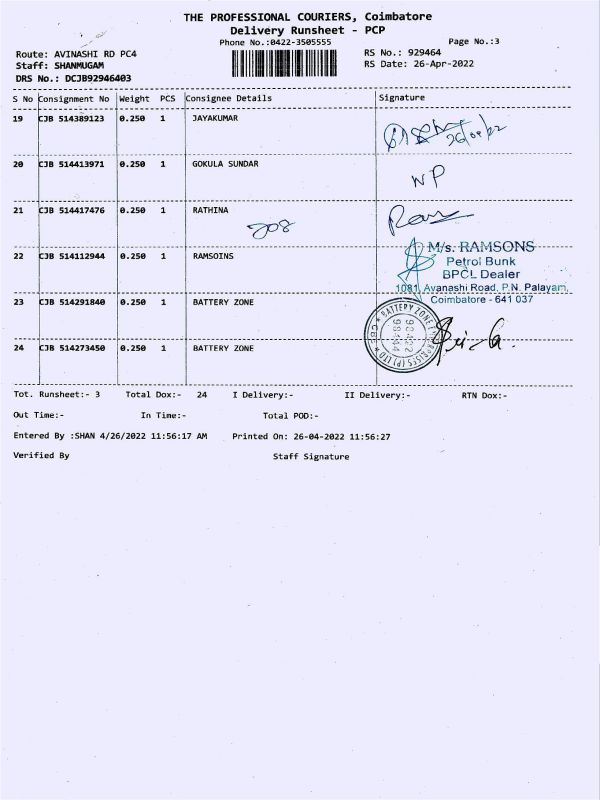 THE PROFESSIONAL COURIERS, Coimbatore
Delivery Runsheet - PCP
Phone No.:0422-3505555
Page No.:3
Route: AVINASHI RD PC4
RS No.: 929464
Staff: SHANMUGAM
RS Date: 26-Apr-2022
DRS No.: DCJB92946403
S No Consignment No Weight PCS Consignee Details Signature
19 CJB 514389123 0.250 1 JAYAKUMAR
26/04/22
20 CJB 514413971 0.250 1 GOKULA SUNDAR
WP
21 CJB 514417476 0.250 1 RATHINA
208
22 CJB 514112944 0.250 1 RAMSOINS
M/s. RAMSONS
Petrol Bunk
BPCL Dealer
1081, Avanashi Road, P.N. Palayam,
Coimbatore - 641 037
23 CJB 514291840 0.250 1 BATTERY ZONE
BATTERY ZONE
24 CJB 514273450 0.250 1 BATTERY ZONE
Tot. Runsheet:- 3 Total Dox:- 24 I Delivery:- II Delivery:- RTN Dox:-
Out Time:- In Time:- Total POD:-
Entered By :SHAN 4/26/2022 11:56:17 AM Printed On: 26-04-2022 11:56:27
Verified By Staff Signature